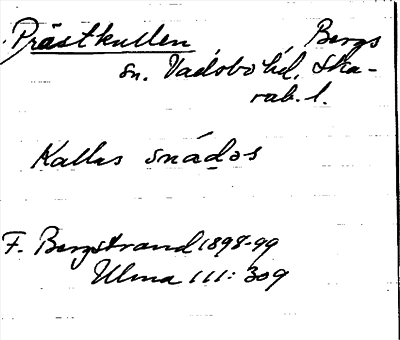 Prästkullen Bergs
sn. Vadsbo hd, Ska-
rab. l.
Kallas snádǝs
F. Bergstrand 1898-99
Ulma 111: 309